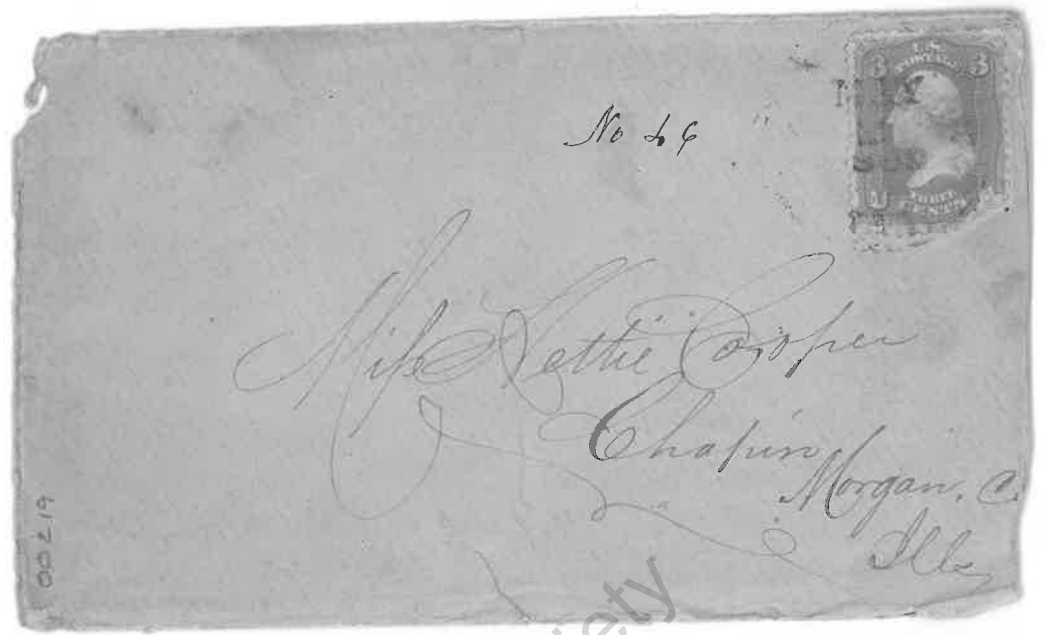 U.S. POSTAGE
3 3
THREE CENTS
No 46
Miss Lettie Cooper
Chapin
Morgan. C.
Ills
00219
iety